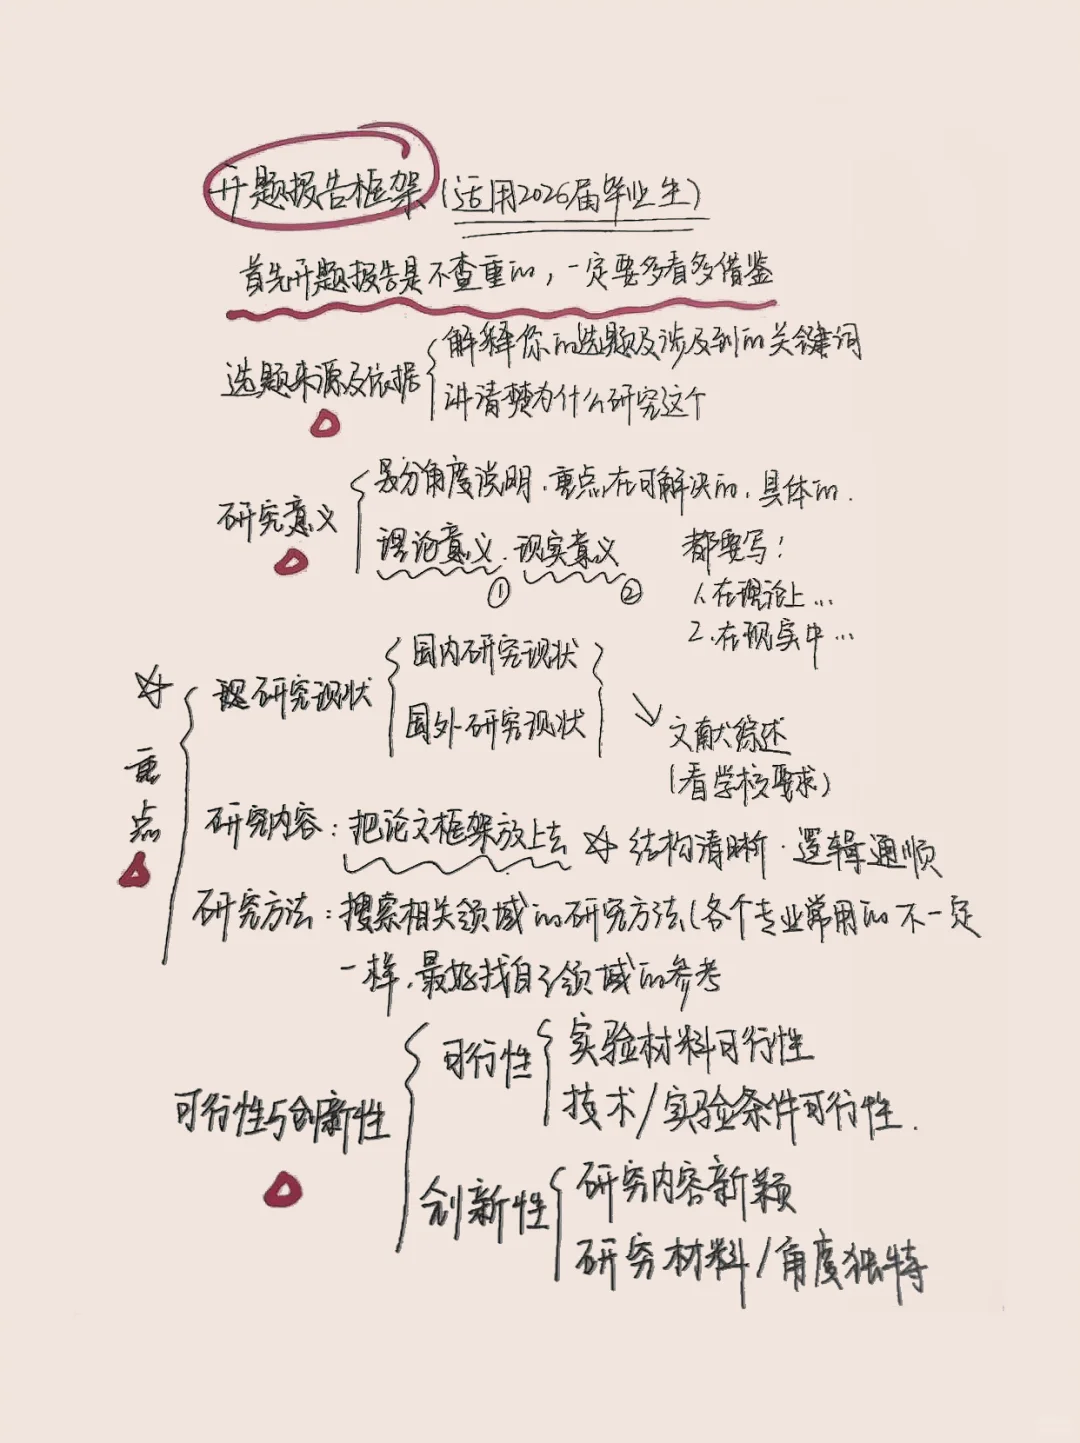 开题报告框架(适用2026届毕业生)
首先开题报告是不查重的,一定要多看多借鉴
选题来源及依据
解释你的选题及涉及到的关键词
讲清楚为什么研究这个
研究意义
分角度说明.重点,在可解决的.具体的.
理论意义.现实意义
① ②
都要写!
1.在理论上...
2.在现实中...
重点
研究现状
国内研究现状
国外研究现状
文献综述
(看学校要求)
研究内容:把论文框架放上去 结构清晰.逻辑通顺
研究方法:搜索相关领域的研究方法(各个专业常用的不一定
一样.最好找自己领域的参考
可行性与创新性
可行性
实验材料可行性
技术/实验条件可行性.
创新性
研究内容新颖
研究材料/角度独特